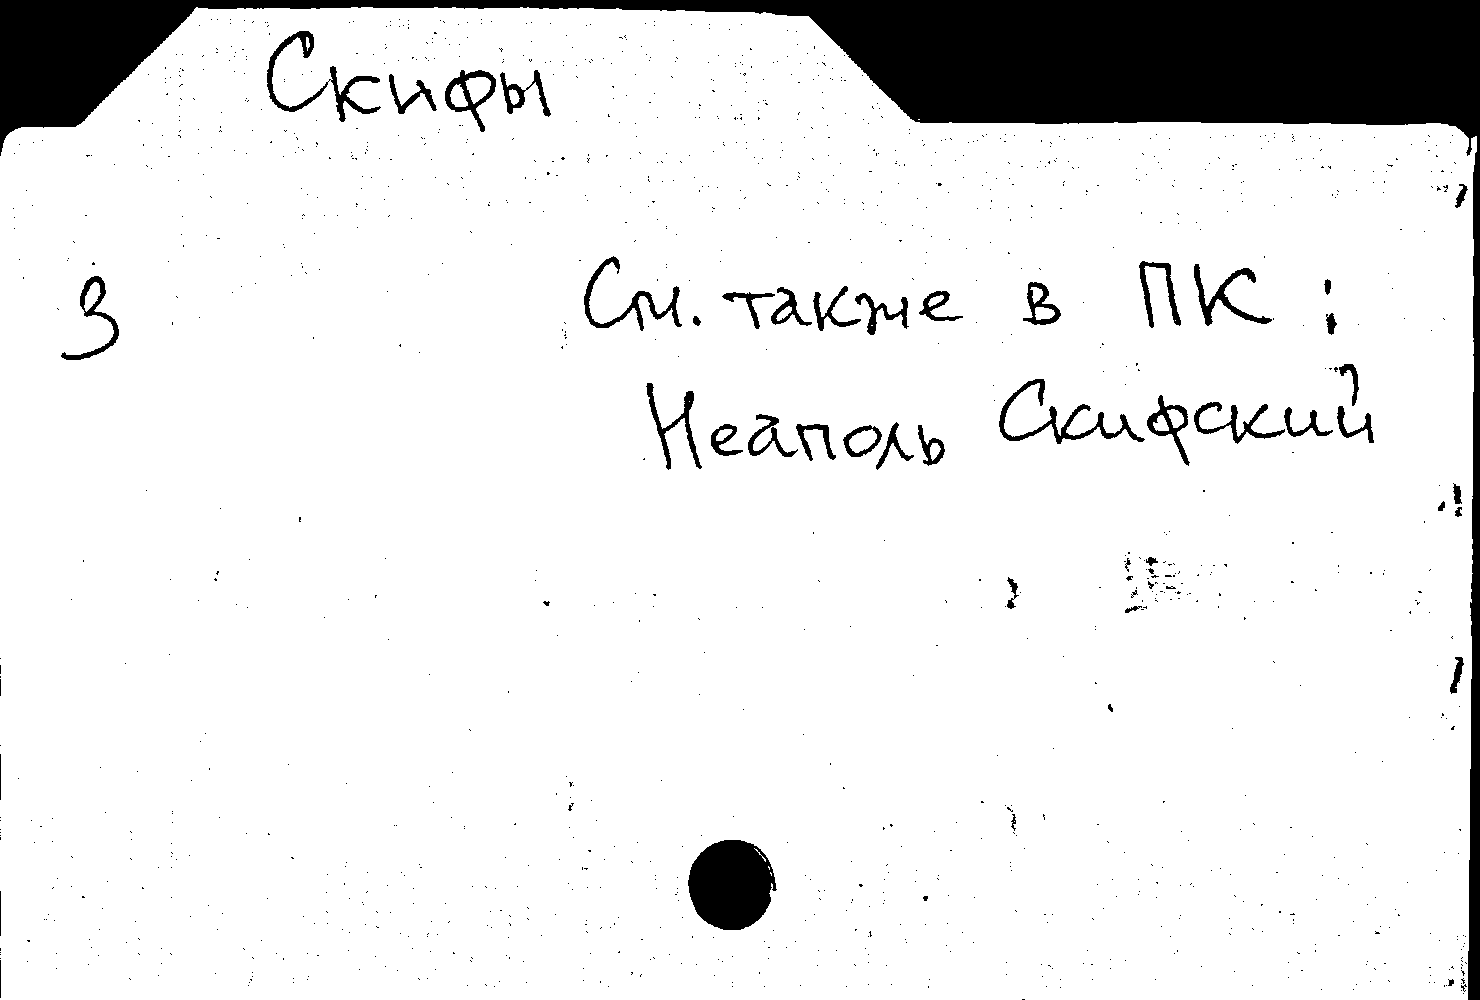 Скифы
З См. также в ПК:
Неаполь Скифский